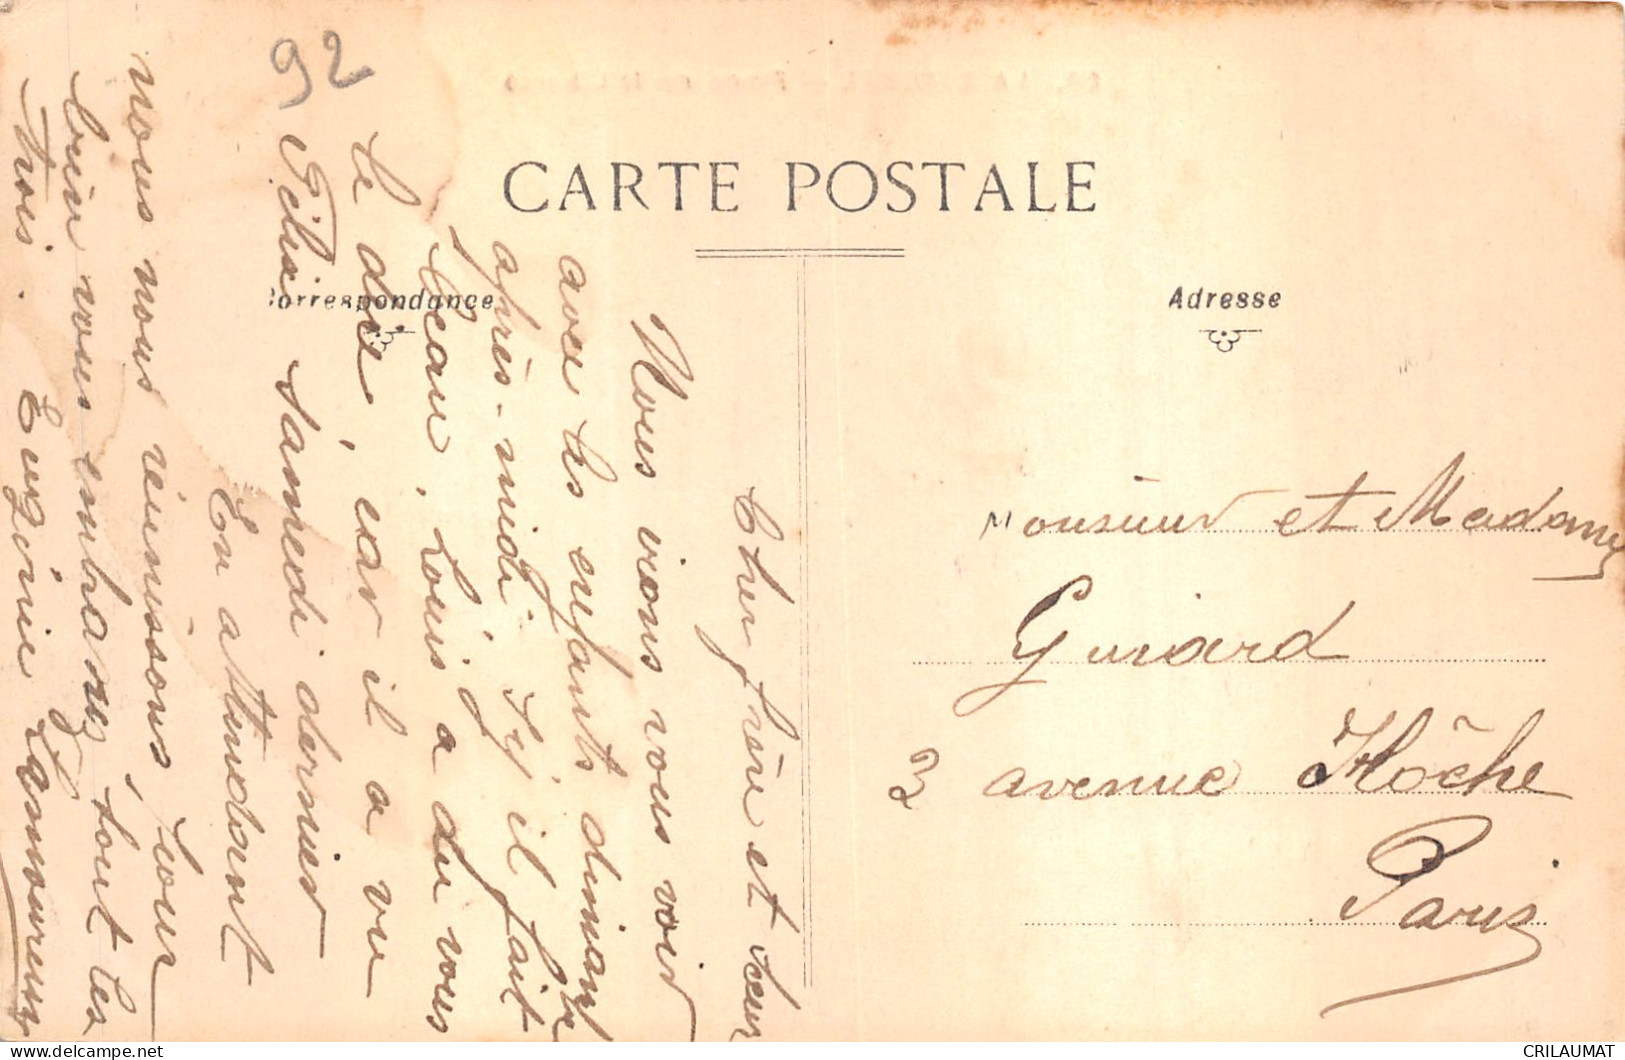 92
CARTE POSTALE
Correspondance
Adresse
Cher frère et sœur
Nous irons vous voir
avec les enfants dimanche
après-midi s'y il fait
beau, Louis a du vous
le dire, car il a vu
Félix samedi dernier
En attendant
nous nous réunissons, pour
bien vous embrassez tout les
trois. Eugénie Lamoureux
Monsieur et Madame
Guiard
2 avenue Hôche
Paris
CRILAUMAT